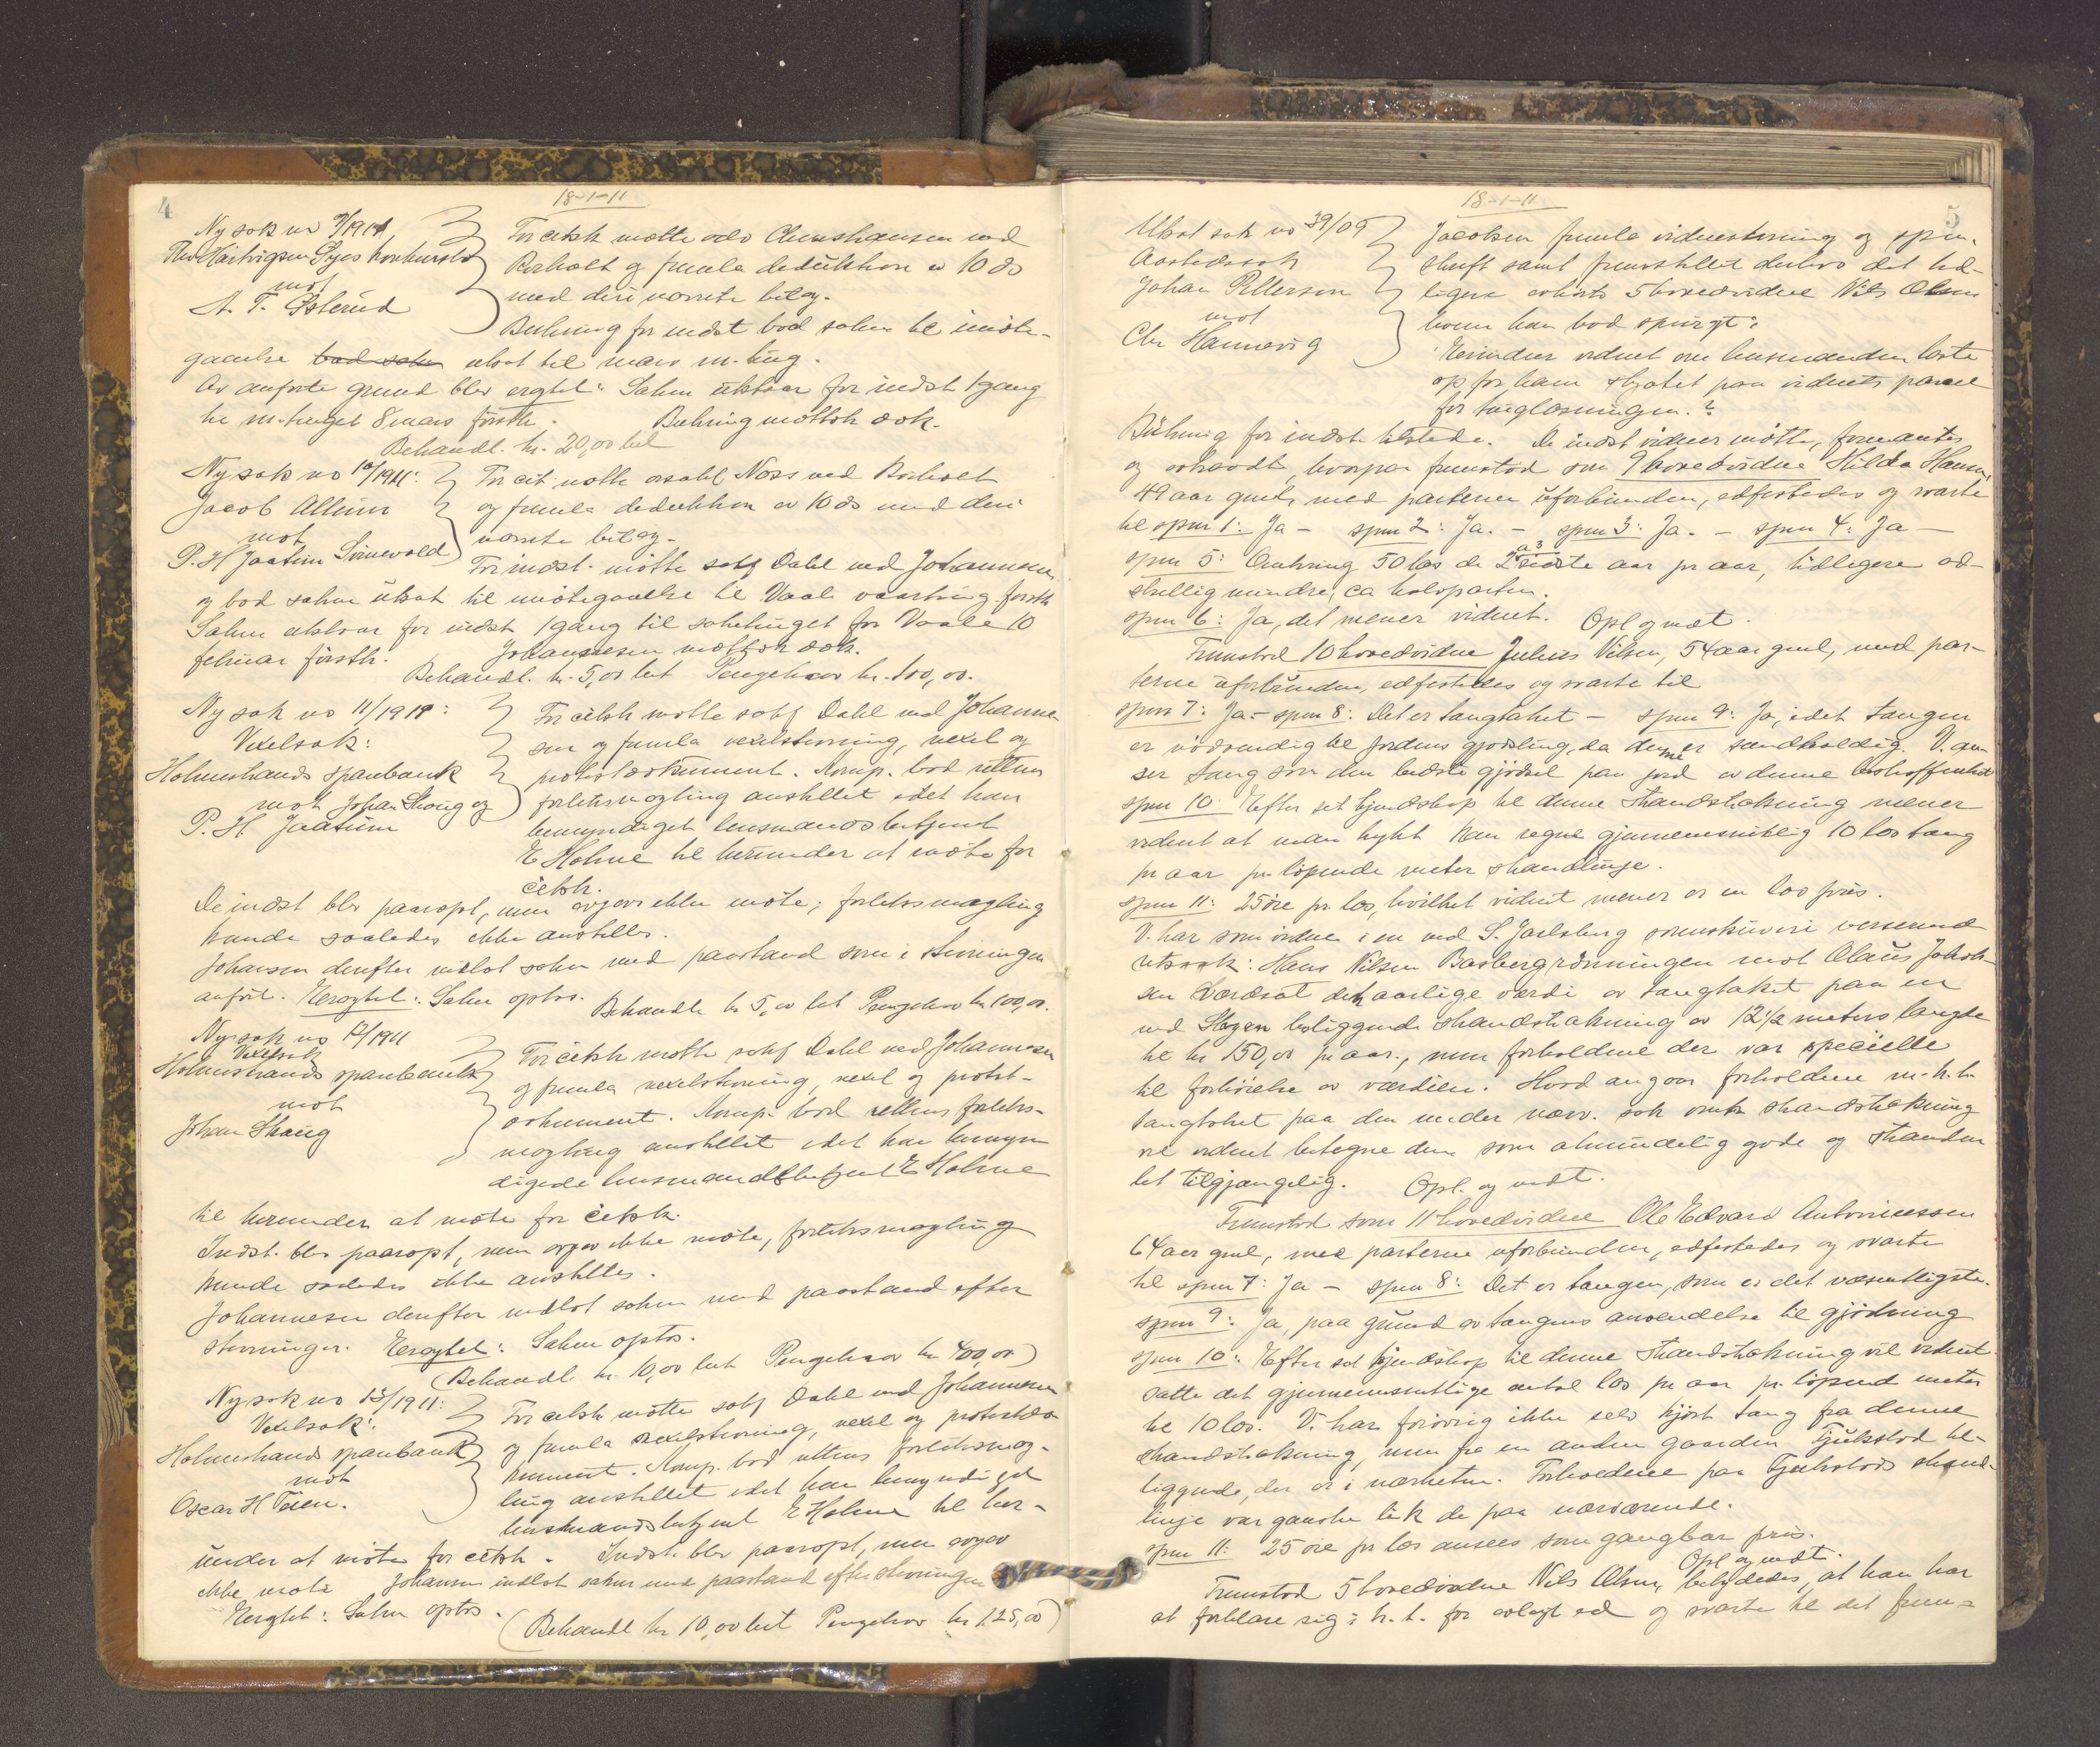 4
18-1-11
Ny sak no 9/1911
Thv. Hartvigsen Gyes konkursbo
mot
A. T. Østerud
For citsk møtte adv Chrwshansen ved
Borholt og fremla deduktion av 10 ds
med deri nævnte bilag.
Buhring for indst bad saken til imøte-
gaaelse bad saken utsat til mars m-ting.
Av anførte grund blev eragtet: Saken utstaar for indst 1 gang
til m-tinget 8 mars førstk. Buhring mottok dok.
Behandl. kr. 20,00 bet
Ny sak no 10/1911:
Jacob Allum
mot
P. H Jaatun Simevold
For cit. møtte orsakf Næss ved Borholt
og fremla deduktion av 10 ds med deri
nævnte bilag-
For indst. møtte sakf Dahl ved Johannesen
og bad saken utsat til imøtegaaelse til Vaale vaarting førstk
Saken utstaar for indst 1 gang til saketinget for Vaale 10
februar førstk. Johannesen mottok dok.
Behandl. kr. 5,00 bet Pengekrav kr. 100,00.
Ny sak no 11/1911:
Vexelsak:
Holmestrands sparebank
mot Johan Skaug og
P. H Jaatun
For citsk møtte sakf Dahl ved Johanne-
sen og fremla vexelstevning, vexel og
protestdokument. Komp. bad rettens
forliksmægling anstillet idet han
bemyndiget lensmandsbetjent
E Holme til herunder at møte for
citsk.
De indst blev paaropt, men avgav ikke møte; forliksmægling
kunde saaledes ikke anstilles.
Johansen derefter indlot saken med paastand som i stevningen
anført. Eragtet: Saken optas. Behandl kr 5,00 bet Pengekrav kr 100,00.
Ny sak no 12/1911
Vexelsak
Holmestrands sparebank
mot
Johan Skaug
For citsk møtte sakf Dahl ved Johannesen
og fremla vexelstevning, vexel og protest-
dokument. Komp. bad rettens forliks-
mægling anstillet idet han bemyn-
digede lensmandsbetjent E Holme
til herunder at møte for citsk.
Indst. blev paaropt, men avgav ikke møte, forliksmægling
kunde saaledes ikke anstilles.
Johannesen derefter indlot saken med paastand efter
stevningen. Eragtet: Saken optas.
(Behandl. kr. 10,00 bet Pengekrav kr 400,00)
Ny sak no 13/1911:
Vexelsak:
Holmestrands sparebank
mot
Oscar H Føien.
For citsk møtte sakf Dahl ved Johannesen
og fremla vexelstevning, vexel og protestdo-
kument. Komp. bad rettens forliksmæg-
ling anstillet idet han bemyndiget
lensmandsbetjent E Holme til her-
under at møte for citsk. Indst. blev paaropt, men avgav
ikke møte Johansen indlot saken med paastand efter stevningen
Eragtet: Saken optas.
(Behandl kr 10,00 bet Pengekrav kr 125,00)
18-1-11
5
Utsat sak no 39/09
Aastedssak
Johan Pettersen
mot
Chr Hannevig
Jacobsen fremla vidnestevning og spm.
skrift samt fremstillet derhos det tid-
ligere avhørte 5 hovedvidne Nils Olsen
hvem han bad spurgt:
Erindrer vidnet om husmanden læste
op for ham skjøtet paa vidnets parcel
før tinglæsningen.?
Bühring for indst. tilstede. De indst. vidner møtte, formantes
og avhørtes, hvorpaa fremstod som 9 hovedvidne Hilda Hansen,
49 aar gml, med parterne uforbunden, edfestedes og svarte
til spm 1: Ja - spm 2: Ja. - spm 3: Ja. - spm 4: Ja -
spm 5: Omkring 50 læs de 2 a 3 sidste aar pr aar, tidligere ad-
skillig mindre, ca halvparten.
spm 6: Ja, det mener vidnet. Opl og vedt.
Fremstod 10 hovedvidne Julius Nilsen, 54 aar gml, med par-
terne uforbunden, edfestedes og svarte til
spm 7: Ja - spm 8: Det er tangtaket - spm 9: Ja, idet tangen
er nødvendig til jordens gjødsling, da denne er sandholdig. V. an-
ser tang som den bedste gjødsel paa jord av denne beskaffenhet
spm 10: Efter sit kjendskap til denne strandstrækning mener
vidnet at man trykt kan regne gjennemsnitlig 10 læs tang
pr aar pr. løpende meter strandlinje.
spm 11: 25 øre pr læs, hvilket vidnet mener er en lav pris.
V. har som vidne i en ved S. Jarlsberg sorenskriveri verserende
retssak: Hans Nilsen Basbergrønningen mot Olaus Jakob-
sen værdsat det aarlige værdi av tangtaket paa en
ved Slagen beliggende strandstrækning av 12½ meters længde
til kr 150,00 pr aar., men forholdene der var specielle
til forhøielse av værdien. Hvad angaar forholdene m.h.t.
tangtaket paa den under nærv. sak omtv. strandstrækning
vil vidnet betegne dem som almindelig gode og stranden
let tilgjængelig. Opl. og vedt.
Fremstod som 11 hovedvidne Ole Edvard Antoniussen
64 aar gml, med parterne uforbunden, edfestedes og svarte
til spm 7: Ja - spm 8: Det er tangen, som er det væsentligste.
spm 9: Ja, paa grund av tangens anvendelse til gjødning
spm 10: Efter sit kjendskap til denne strandstrækning vil vidnet
sætte det gjennemsnitlige antal læs pr aar pr. løpend meter
til 10 læs. V. har forøvrig ikke selv kjørt tang fra denne
strandstrækning, men fra en anden gaarden Fjukstod til-
liggende, der er i nærheten. Forholdene paa Fjukstods strand-
linje var ganske lik de paa nærværende.
spm 11: 25 øre pr læs ansees som gangbar pris.
Opl og vedt.
Fremstod 5 hovedvidne Nils Olsen, betydedes, at han har
at forklare sig i h. t. før avlagt ed og svarte til det frem-